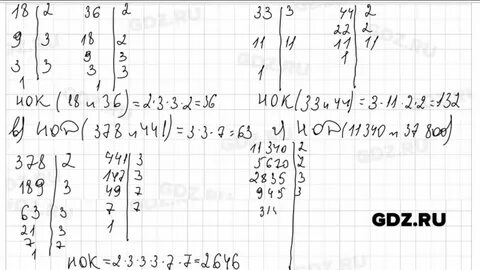 18 | 2   36 | 2   33 | 3   44 | 2
9 | 3   18 | 2   11 | 11   22 | 2
3 | 3   9 | 3   1   11 | 11
1   3 | 3   1
1
НОК (18 и 36) = 2·3·3·2 = 36   НОК (33 и 44) = 3·11·2·2 = 132
в) НОД (378 и 441) = 3·3·7 = 63   г) НОД (11340 и 37800)
378 | 2   441 | 3   11340 | 2
189 | 3   147 | 3   5670 | 2
63 | 3   49 | 7   2835 | 3
21 | 3   7 | 7   945 | 3
7 | 7   1
1
НОК = 2·3·3·3·7·7 = 2646
GDZ.RU